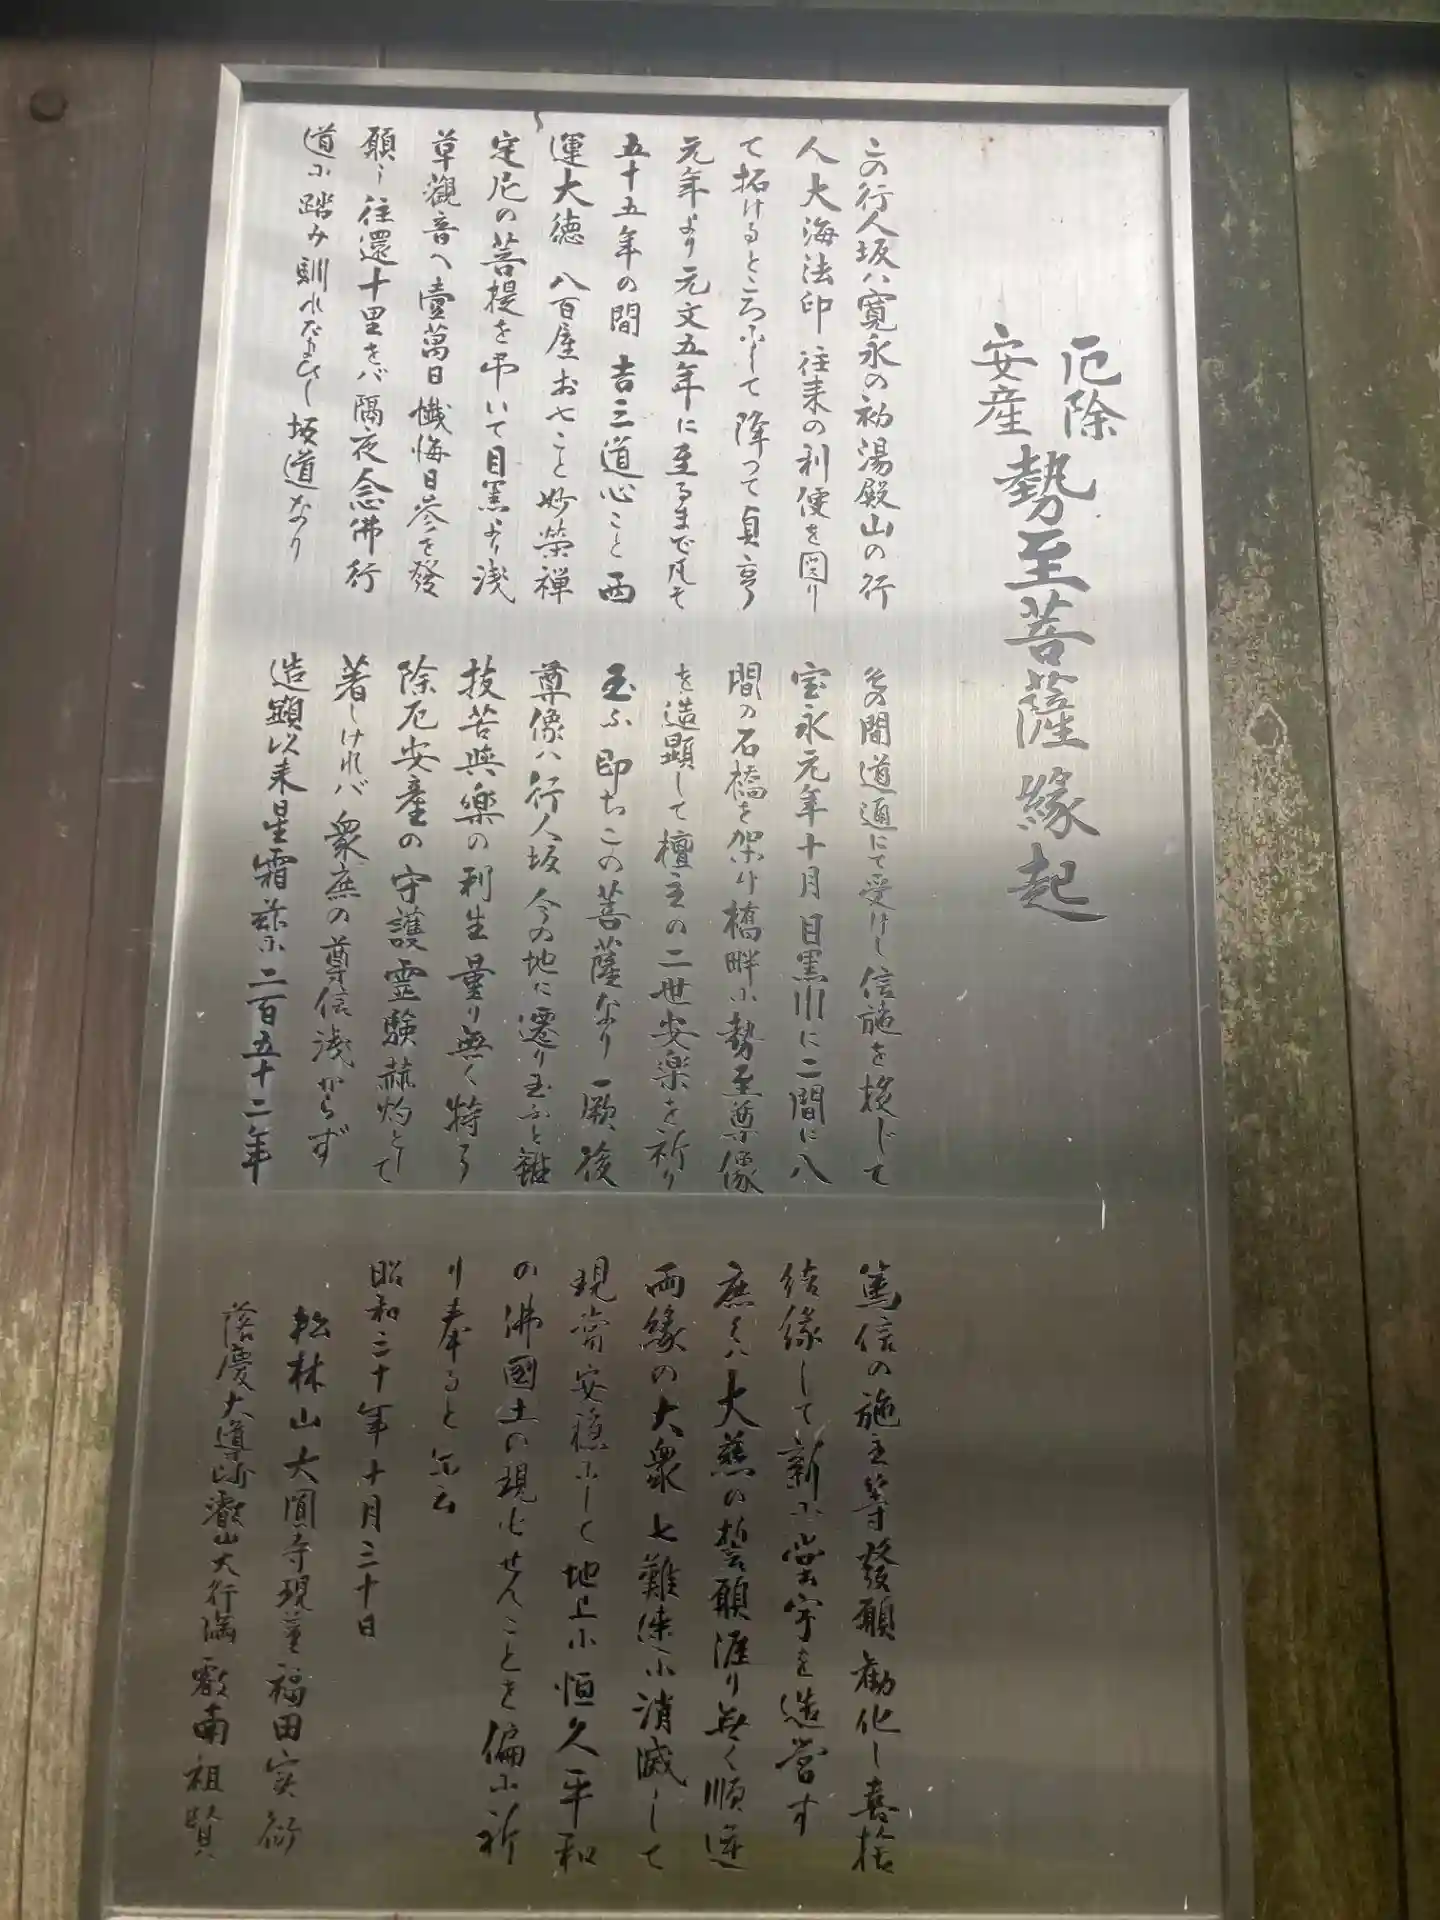 厄除
安産
勢至菩薩縁起
この行人坂ハ寛永の初湯殿山の行
人大海法印 往来の利便を図り
て拓けるところにして 降つて貞享
元年より元文五年に至るまで凡そ
五十五年の間 吉三道心こと西
運大徳 八百屋お七こと妙栄禅
定尼の菩提を弔いて目黒より浅
草観音へ壹萬日懺悔日参を發
願し往還十里をバ隔夜念佛行
道に踏み馴れたまひし坂道なり
その間道通にて受けし信施を捧じて
宝永元年十月目黒川に二間に八
間の石橋を架け橋畔に勢至尊像
を造顕して檀主の二世安楽を祈り
玉ふ 即ちこの菩薩なり 厥後
尊像ハ行人坂今の地に遷り玉ふと雖
抜苦與樂の利生量り無く特に
除厄安産の守護霊験赫灼として
著しけれバ衆庶の尊信浅からず
造顕以来星霜茲に二百五十二年
篤信の施主等發願勧化し喜捨
結縁して新に堂宇を造営す
庶くハ大慈の誓願涯り無く順逆
両縁の大衆七難速に消滅して
現當安穏にして地上に恒久平和
の佛國土の現ンせんことを偏に祈
り奉ると尓云
昭和三十年十月三十日
松林山大圓寺現董福田実衍
落慶大導師叡山大行満叡南祖賢